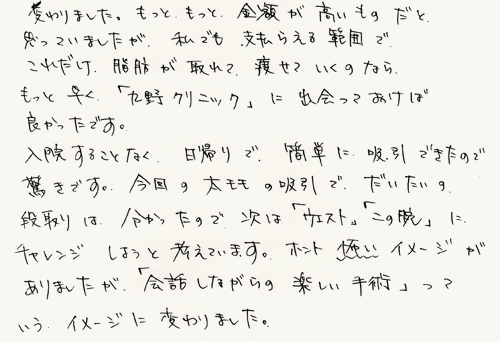 変わりました。もっと、もっと、金額が高いものだと、
思っていましたが、私でも支払らえる範囲で、
これだけ、脂肪が取れて、痩せていくのなら、
もっと早く、「九野クリニック」に出会っておけば
良かったです。
入院することなく、日帰りで、簡単に吸引できたので
驚きです。今回の太モモの吸引で、だいたいの、
段取りは、分かったので、次は「ウエスト」「二の腕」に
チャレンジしようと考えています。ホント怖いイメージが
ありましたが、「会話しながらの楽しい手術」って
いう、イメージに変わりました。